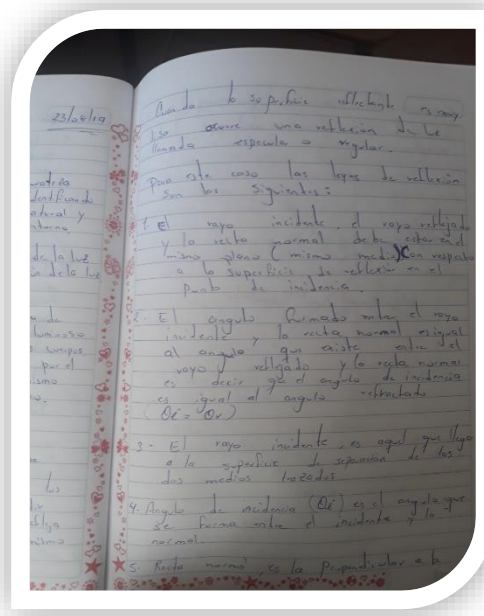 23/04/19
natural y
de la luz
ón de la luz
luminoso
por el
los
Cuando la superficie reflectante es muy
lisa ocurre una reflexión de luz
llamada especular o regular.
para este caso las leyes de reflexión
son las siguientes:
1. El rayo incidente, el rayo reflejado
y la recta normal debe estar en el
mismo plano (mismo medio) con respecto
a la superficie de reflexión en el
punto de incidencia.
2. El angulo formado entre el rayo
incidente y la recta normal es igual
al angulo que existe entre el
rayo y reflejado y la recta normal
es decir que el angulo de incidencia
es igual al angulo refractado
(θi = θr)
3 - El rayo incidente, es aquel que llega
a la superficie de separación de los
dos medios trazados
4. Angulo de incidencia (θi) es el angulo que
se forma entre el incidente y la
normal.
5. Recta normal, es la Perpendicular a la